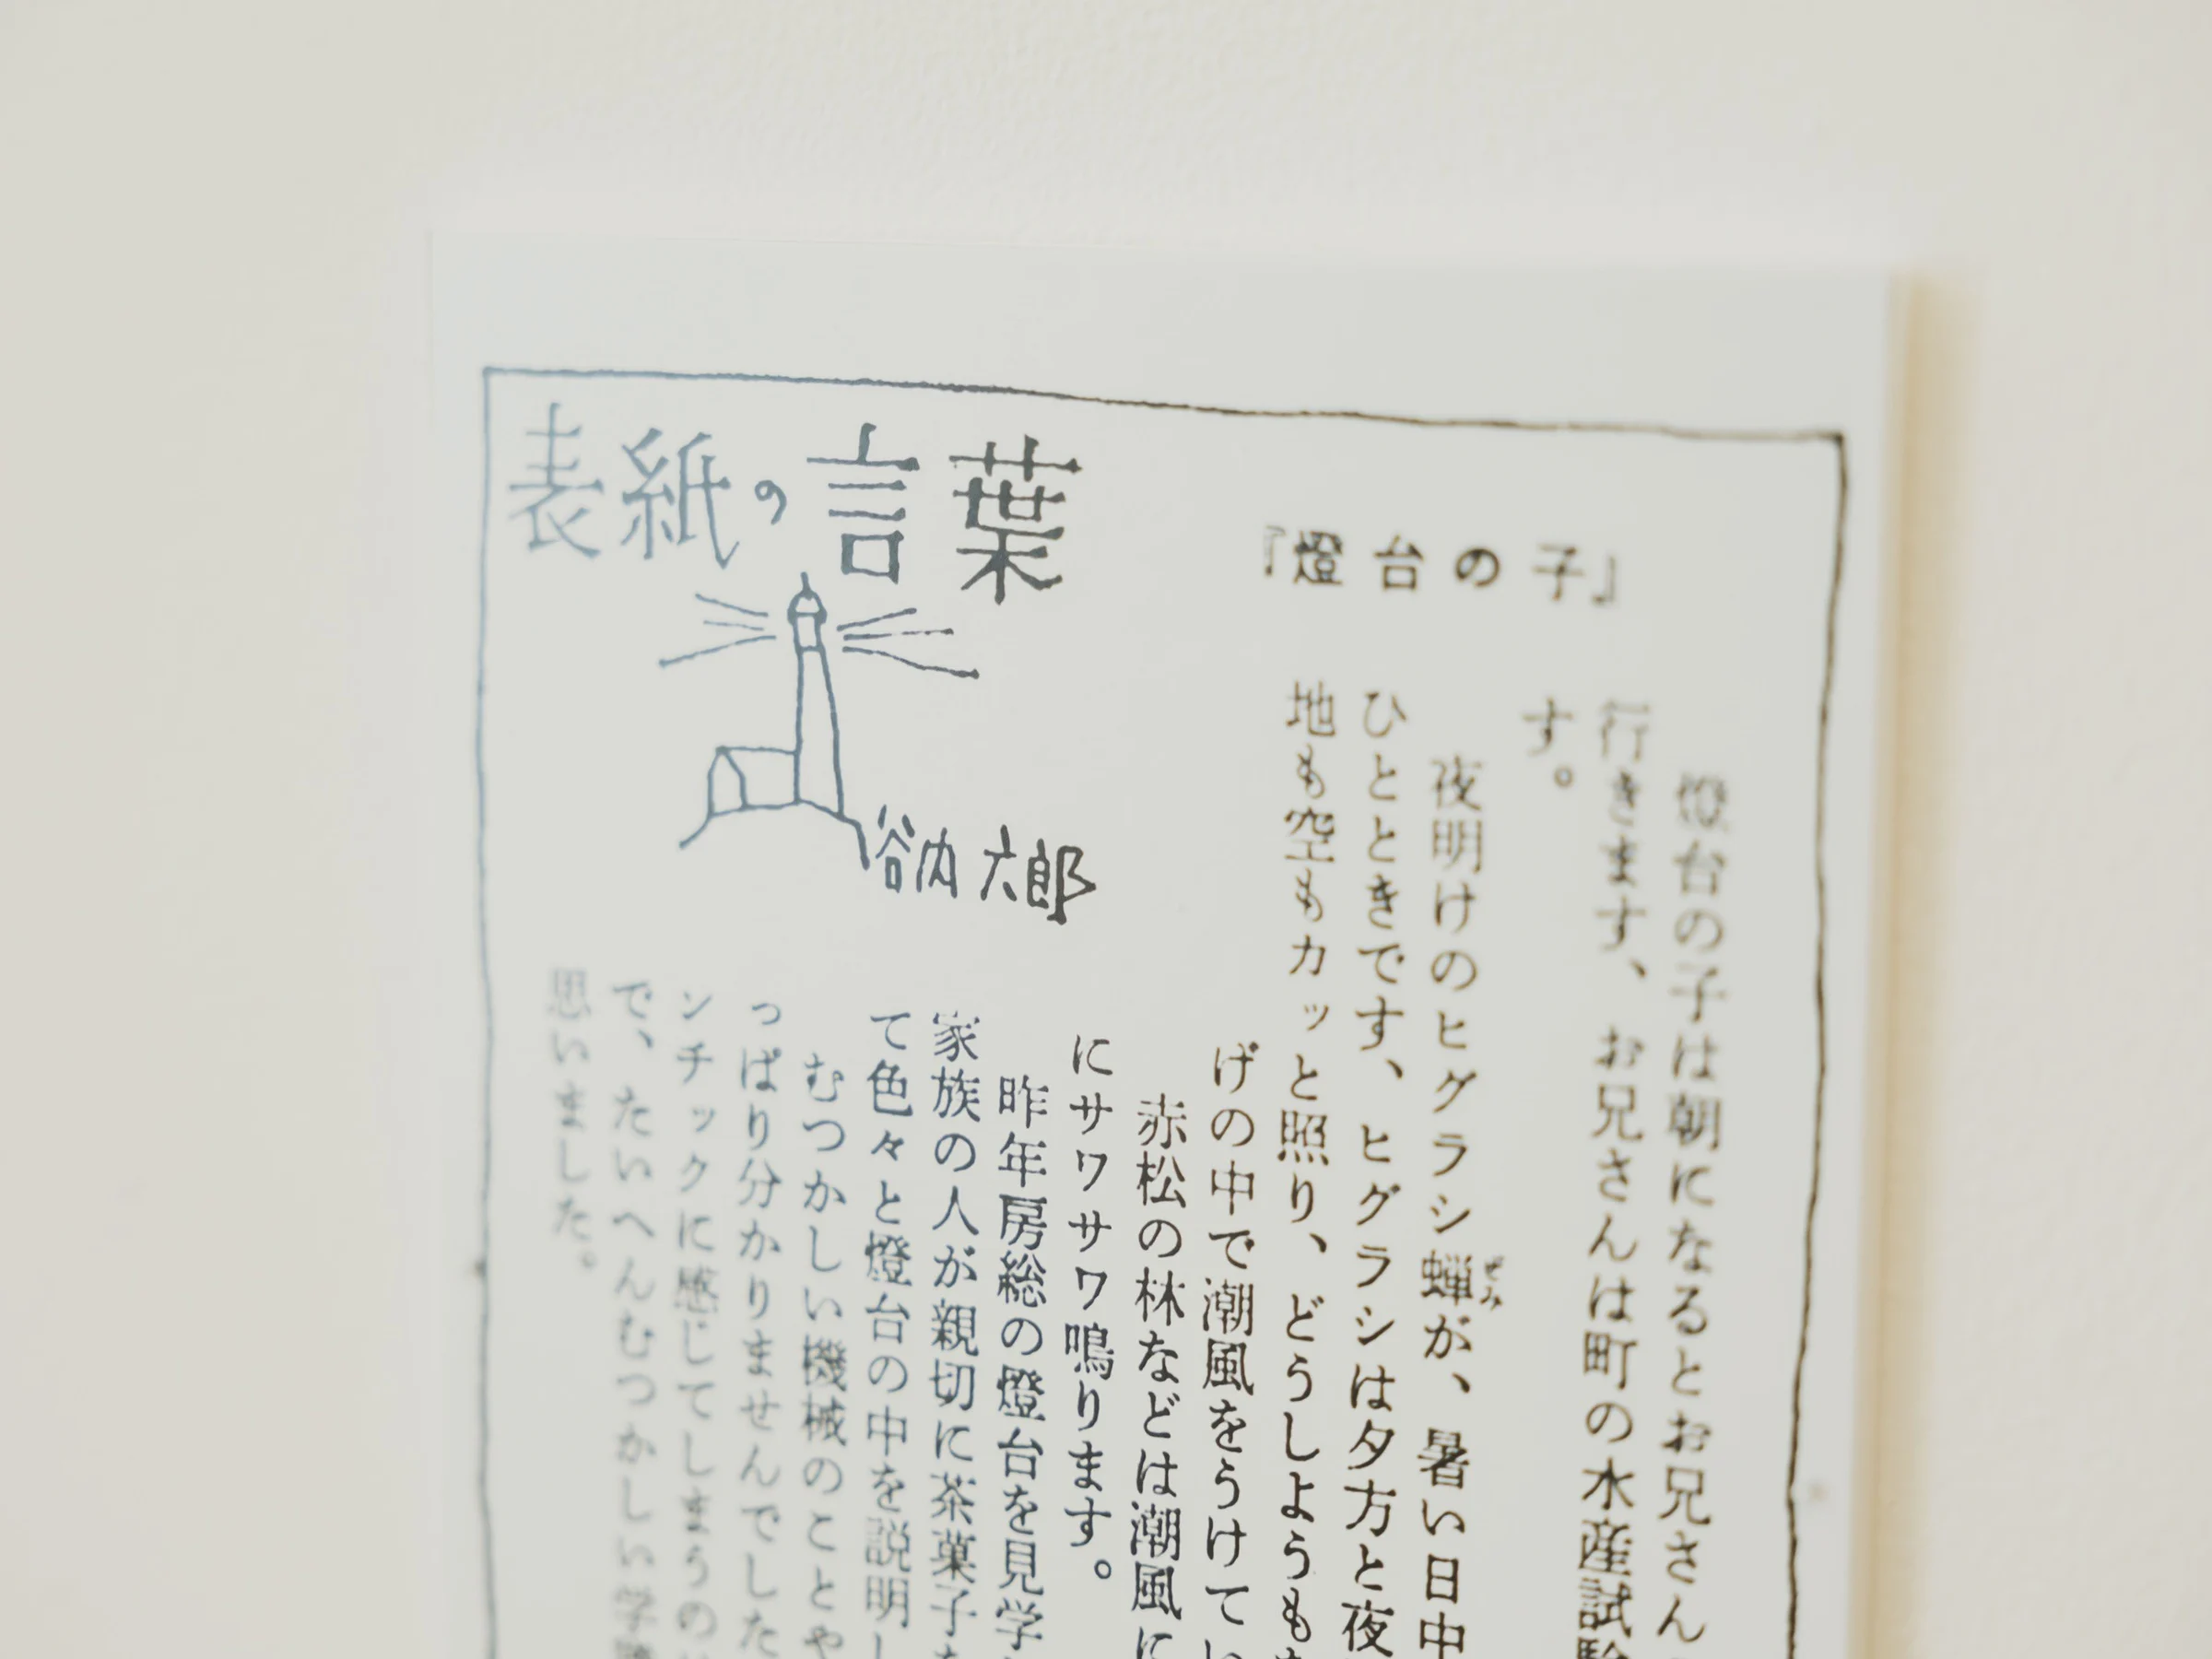 表紙の言葉
谷内六郎
『燈台の子』
燈台の子は朝になるとお兄さん
行きます、お兄さんは町の水産試験
す。
夜明けのヒグラシ蝉が、暑い日中
ぜみ
ひとときです、ヒグラシは夕方と夜
地も空もカッと照り、どうしようも
げの中で潮風をうけてい
赤松の林などは潮風に
にサワサワ鳴ります。
昨年房総の燈台を見学
家族の人が親切に茶菓子
て色々と燈台の中を説明し
むつかしい機械のことや
っぱり分かりませんでした
ンチックに感じてしまうの
で、たいへんむつかしい学
思いました。